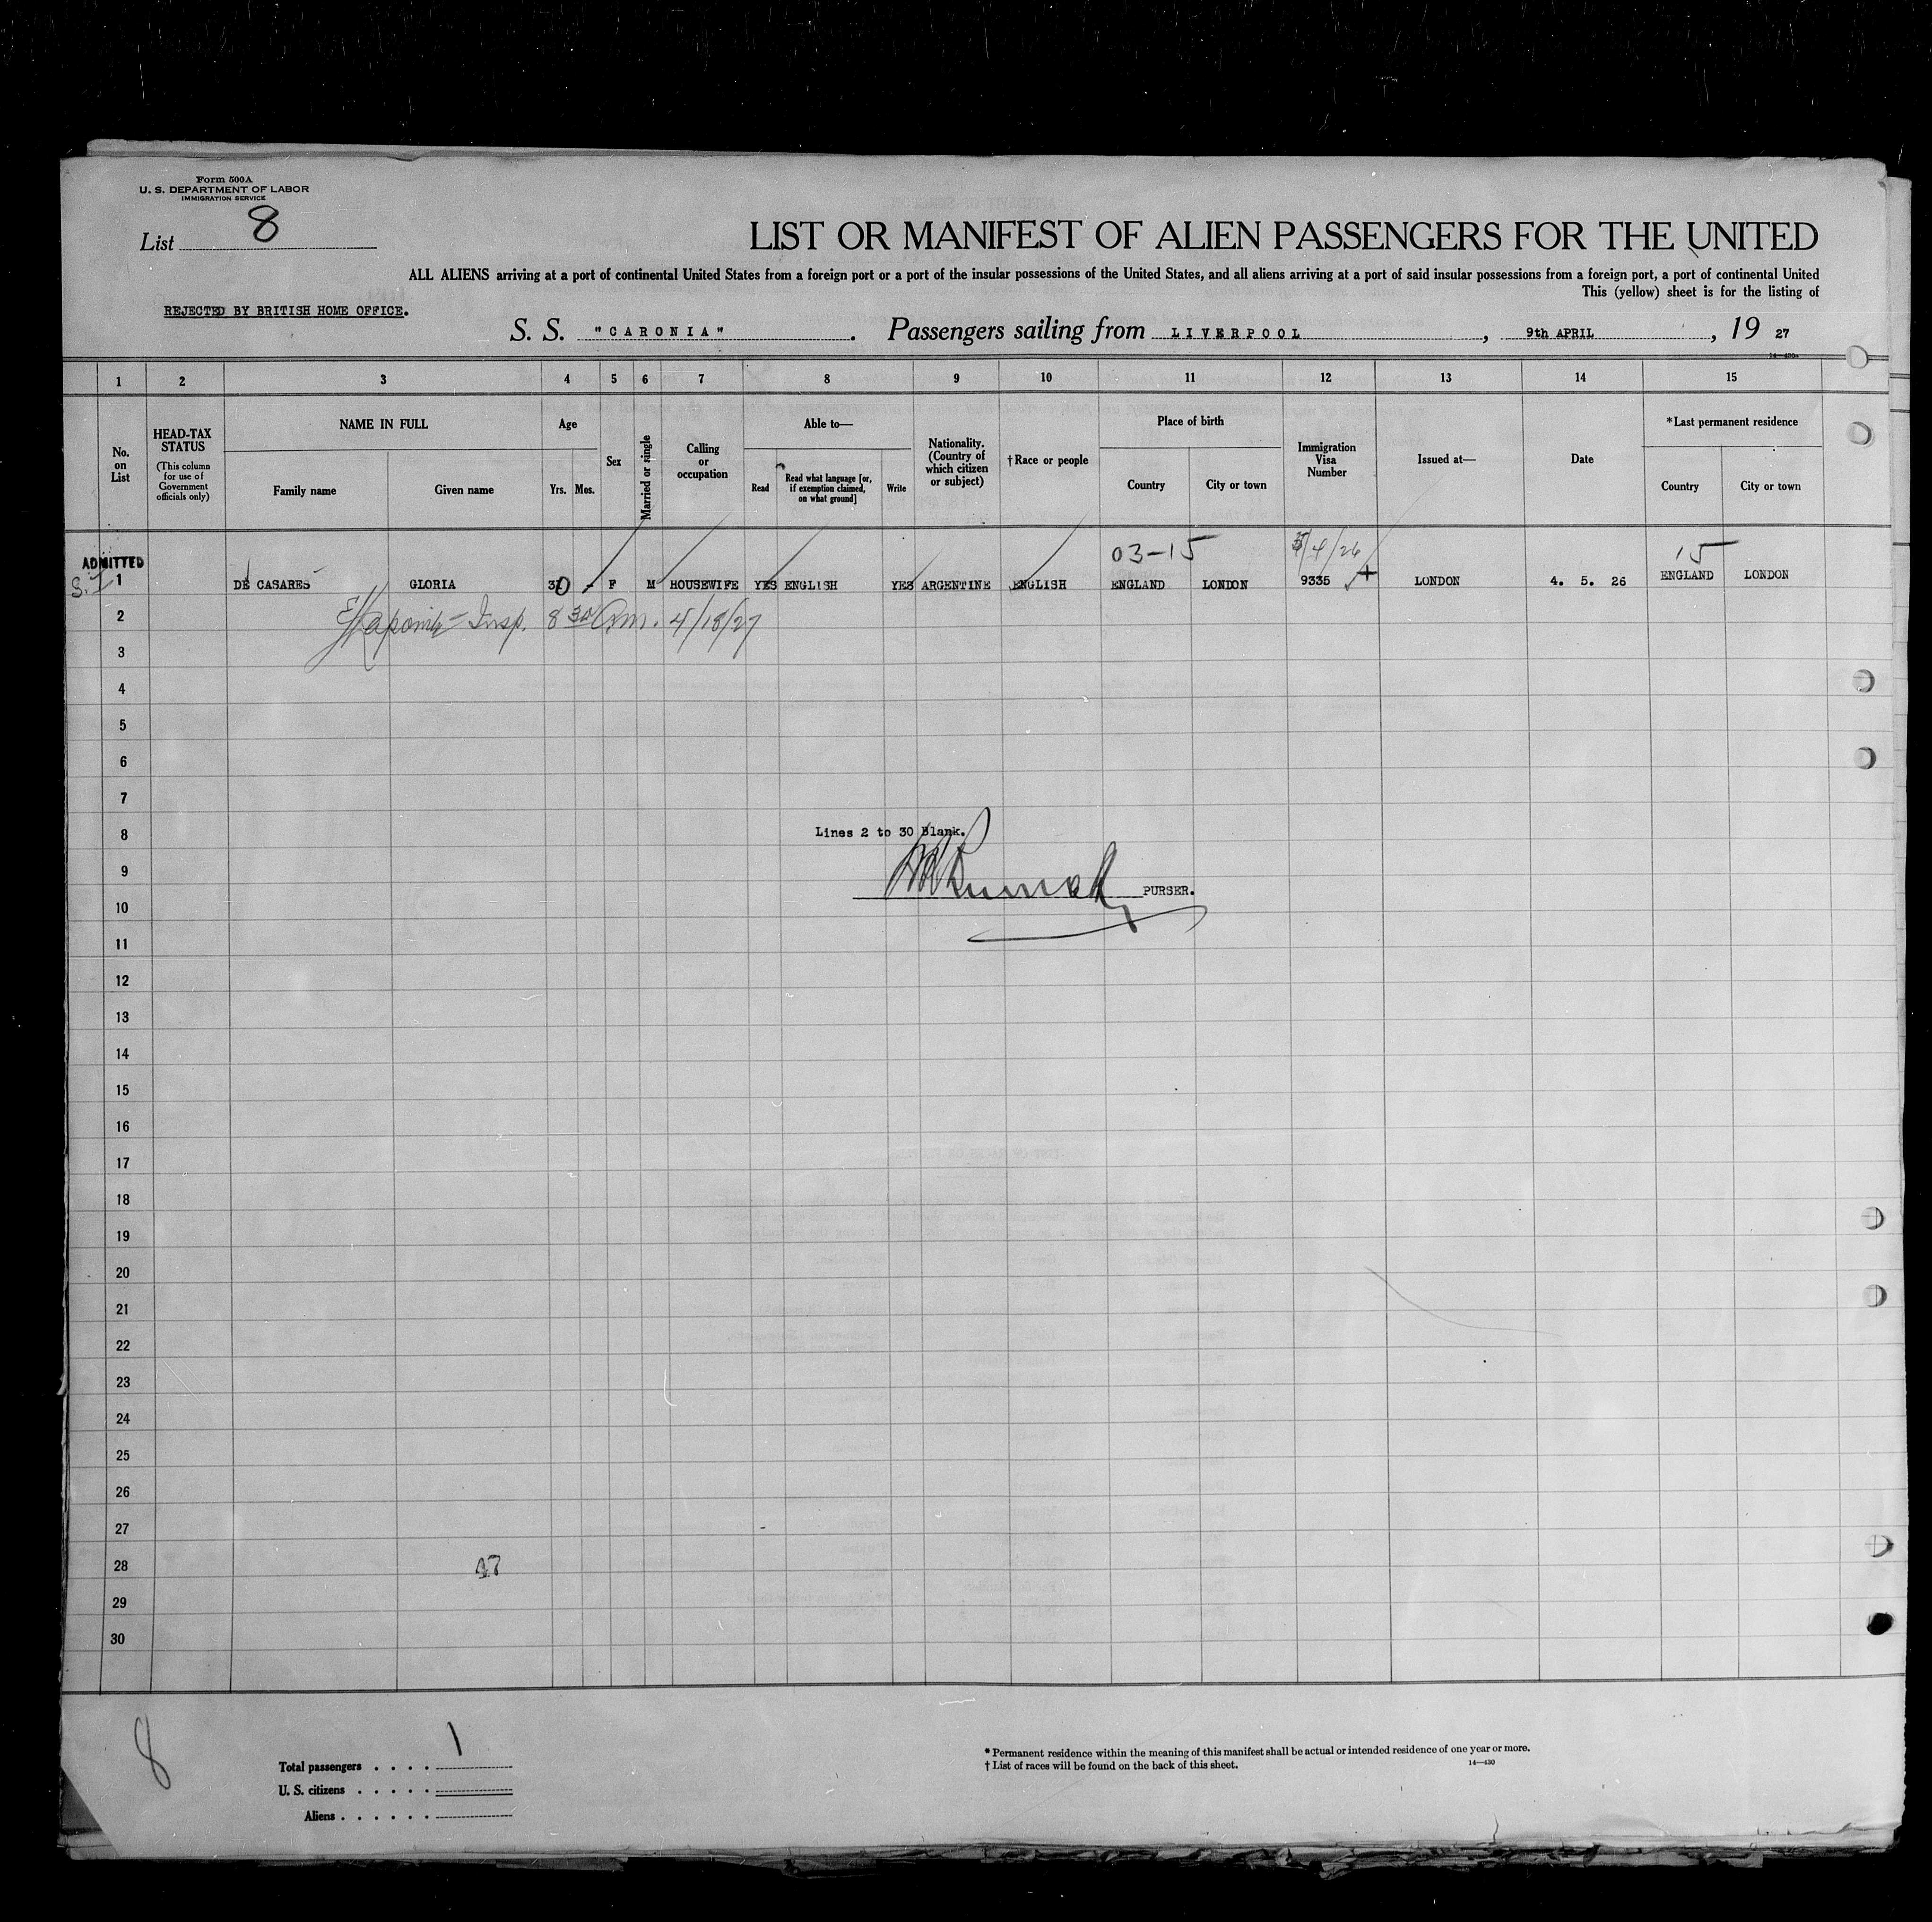 Form 500A
U. S. DEPARTMENT OF LABOR
IMMIGRATION SERVICE
List 8
LIST OR MANIFEST OF ALIEN PASSENGERS FOR THE UNITED
ALL ALIENS arriving at a port of continental United States from a foreign port or a port of the insular possessions of the United States, and all aliens arriving at a port of said insular possessions from a foreign port, a port of continental United
This (yellow) sheet is for the listing of
REJECTED BY BRITISH HOME OFFICE.
S. S. "CARONIA". Passengers sailing from LIVERPOOL, 9th APRIL, 19 27
14—430a
1 2 3 4 5 6 7 8 9 10 11 12 13 14 15
No. on List
HEAD-TAX STATUS
(This column for use of Government officials only)
NAME IN FULL
Family name Given name
Age
Yrs. Mos.
Sex
Married or single
Calling or occupation
Able to—
Read
Read what language [or, if exemption claimed, on what ground]
Write
Nationality. (Country of which citizen or subject)
†Race or people
Place of birth
Country City or town
Immigration Visa Number
Issued at—
Date
*Last permanent residence
Country City or town
03-15 5/4/26 15
ADMITTED
S.I.
1 DE CASARES GLORIA 30 - F M HOUSEWIFE YES ENGLISH YES ARGENTINE ENGLISH ENGLAND LONDON 9335 LONDON 4. 5. 26 ENGLAND LONDON
2 Insp. 8 30 Am. 4/18/27
3
4
5
6
7
8 Lines 2 to 30 Blank.
9
PURSER.
10
11
12
13
14
15
16
17
18
19
20
21
22
23
24
25
26
27
28 47
29
30
8
Total passengers . . . . 1
U. S. citizens . . . . .
Aliens . . . . . .
* Permanent residence within the meaning of this manifest shall be actual or intended residence of one year or more.
† List of races will be found on the back of this sheet.
14—430